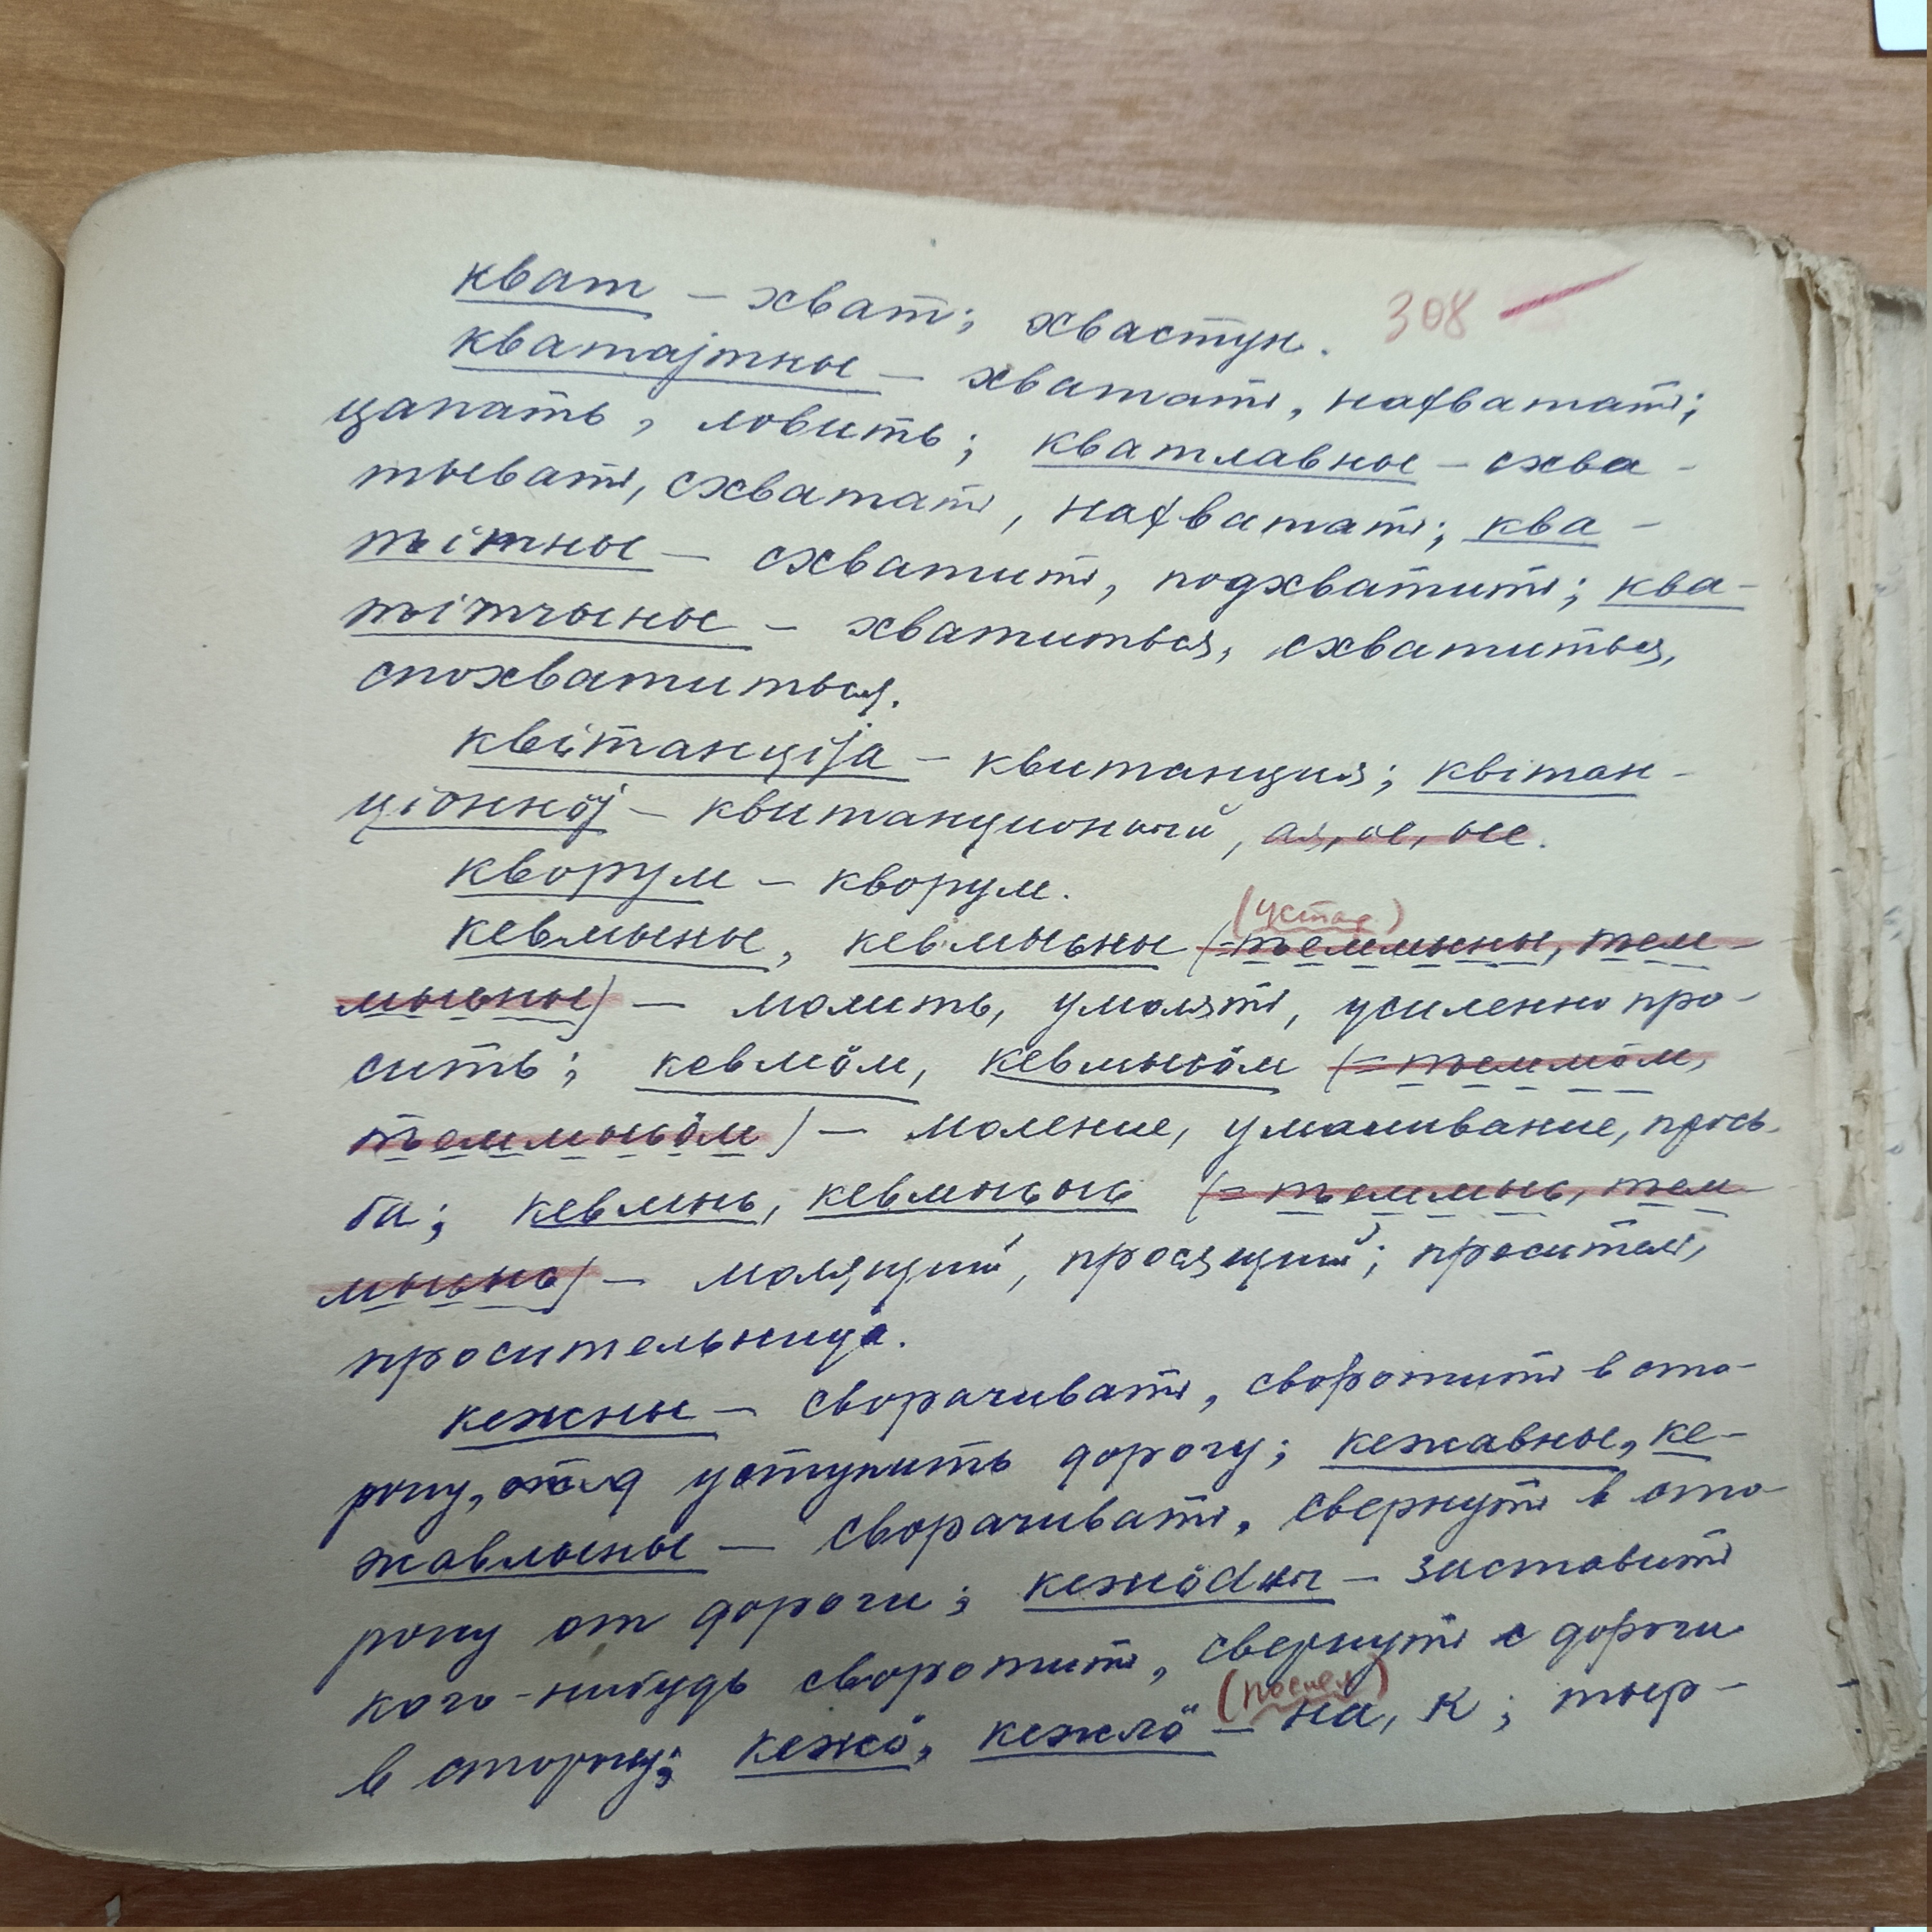 308
кват – хват; хвастун.
кватајтны – хватать, нахватать;
цапать, ловить; кватлавны – схва-
тывать, схватать, нахватать; ква-
тітны – схватить, подхватить; ква-
тітчыны – хватиться, схватиться,
спохватиться.
квітанціја – квитанция; квітан-
ціоннöј – квитанционный, ая, ое, ые.
кворум – кворум.
(устар)
кевмыны, кевмыԍны (=теммыны, тем-
мыԍны) – молить, умолять, усиленно про-
сить; кевмöм, кевмыԍöм (= теммöм,
теммыԍöм) – моление, умаливание, прось-
ба; кевмыԍ, кевмыԍыԍ (= теммыԍ, тем-
мыԍыԍ) – молящий, просящий; проситель,
просительница.
кежны – сворачивать, своротить в сто-
рону, уступить дорогу; кежавны, ке-
жавлыны – сворачивать, свернуть в сто-
рону от дороги; кежöдны – заставить
кого-нибудь своротить, свернуть с дороги
(послел)
в сторону; кежö, кежлö – на, к; тыр-